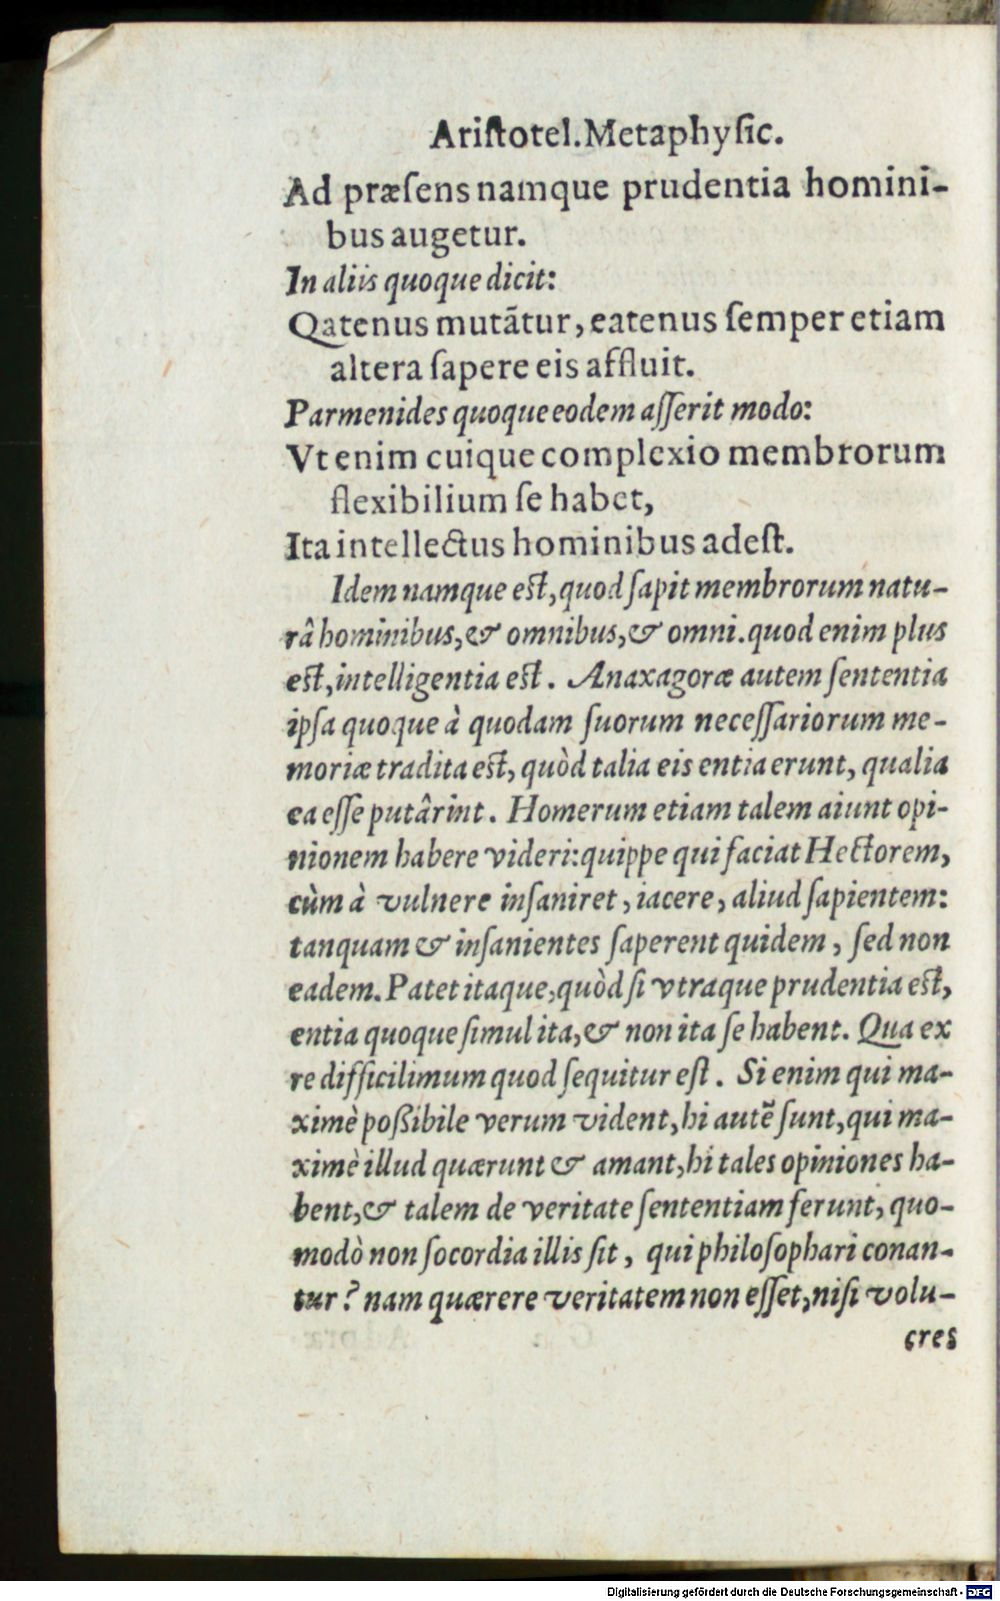 Aristotel. Metaphysic.
Ad præsens namque prudentia homini-
bus augetur.
In aliis quoque dicit:
Qatenus mutãtur, eatenus semper etiam
altera sapere eis affluit.
Parmenides quoque eodem asserit modo:
Vt enim cuique complexio membrorum
flexibilium se habet,
Ita intellectus hominibus adest.
Idem namque est, quod sapit membrorum natu-
râ hominibus, & omnibus, & omni. quod enim plus
est, intelligentia est. Anaxagoræ autem sententia
ipsa quoque à quodam suorum necessariorum me-
moriæ tradita est, quòd talia eis entia erunt, qualia
ea esse putârint. Homerum etiam talem aiunt opi-
nionem habere videri: quippe qui faciat Hectorem,
cùm à vulnere insaniret, iacere, aliud sapientem:
tanquam & insanientes saperent quidem, sed non
eadem. Patet itaque, quòd si vtraque prudentia est,
entia quoque simul ita, & non ita se habent. Qua ex
re difficilimum quod sequitur est. Si enim qui ma-
ximè poßibile verum vident, hi autẽ sunt, qui ma-
ximè illud quærunt & amant, hi tales opiniones ha-
bent, & talem de veritate sententiam ferunt, quo-
modò non socordia illis sit, qui philosophari conan-
tur? nam quærere veritatem non esset, nisi volu-
cres
Digitalisierung gefördert durch die Deutsche Forschungsgemeinschaft - DFG